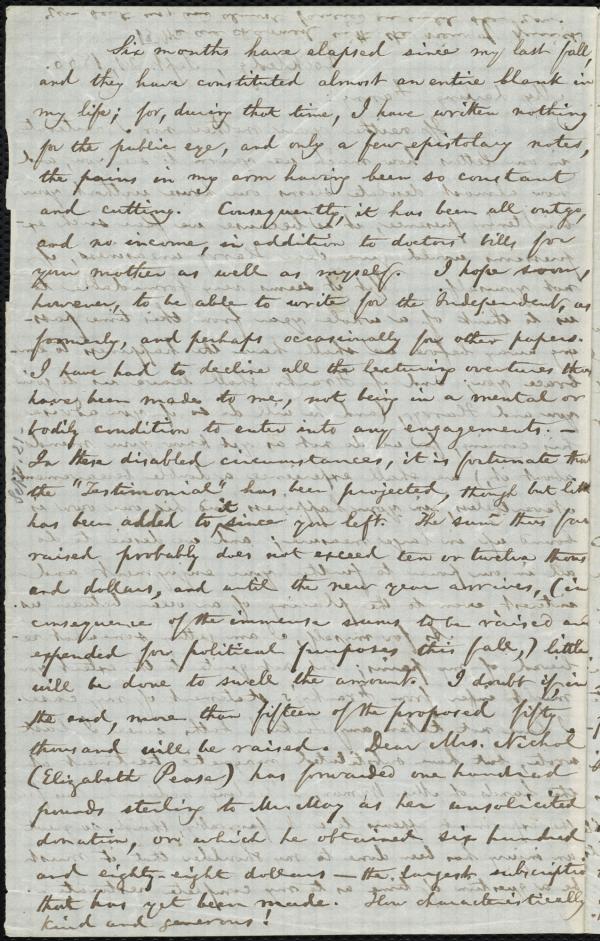 Six months have elapsed since my last fall,
and they have constituted almost an entire blank in
my life; for, during that time, I have written nothing
for the public eye, and only a few epistolary notes,
the pains in my arm having been so constant
and cutting. Consequently, it has been all outgo,
and no income, in addition to doctors' bills for
your mother as well as myself. I hope soon,
however, to be able to write for the Independent, as
formerly, and perhaps occasionally for other papers.
I have had to decline all the lecturing overtures that
have been made to me, not being in a mental or
bodily condition to enter into any engagements. —
In these disabled circumstances, it is fortunate that
the "Testimonial" has been projected, though but little
has been added to it since you left. The sum thus far
raised probably does not exceed ten or twelve thous
and dollars, and until the new year arrives, (in
consequence of the immense sums to be raised and
expended for political purposes this fall,) little
will be done to swell the amount. I doubt if, in
the end, more than fifteen of the proposed fifty
thousand will be raised. Dear Mrs. Nichol
(Elizabeth Pease) has forwarded one hundred
pounds sterling to Mr. May as her unsolicited
donation, on which he obtained six hundred
and eighty-eight dollars — the largest subscription
that has yet been made. How characteristically
kind and generous!